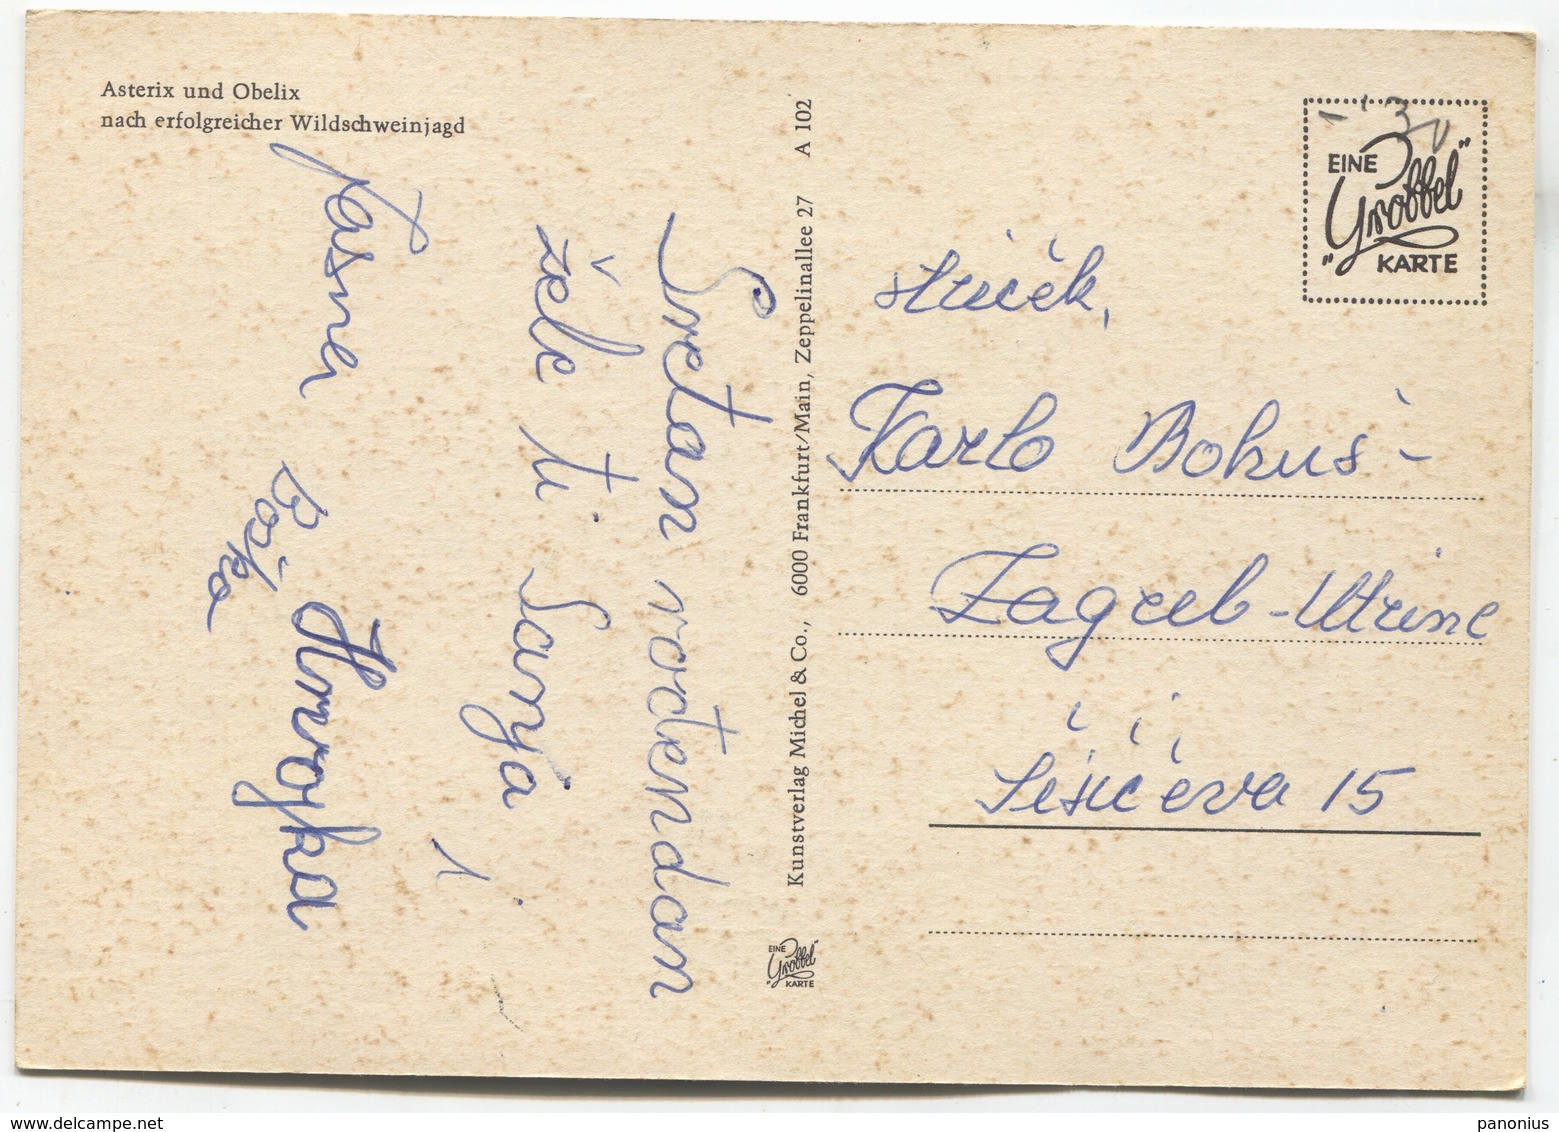 Asterix und Obelix
nach erfolgreicher Wildschweinjagd
Sretan rođendan
žele ti Sanja
i
Vesna Hrvojka
Boška
Kunstverlag Michel & Co., 6000 Frankfurt/Main, Zeppelinallee 27 A 102
EINE
"Grobbel"
KARTE
EINE
"Grobbel"
KARTE
Karlo Bokuš -
Zagreb - Utrine
Šišićeva 15
panonius